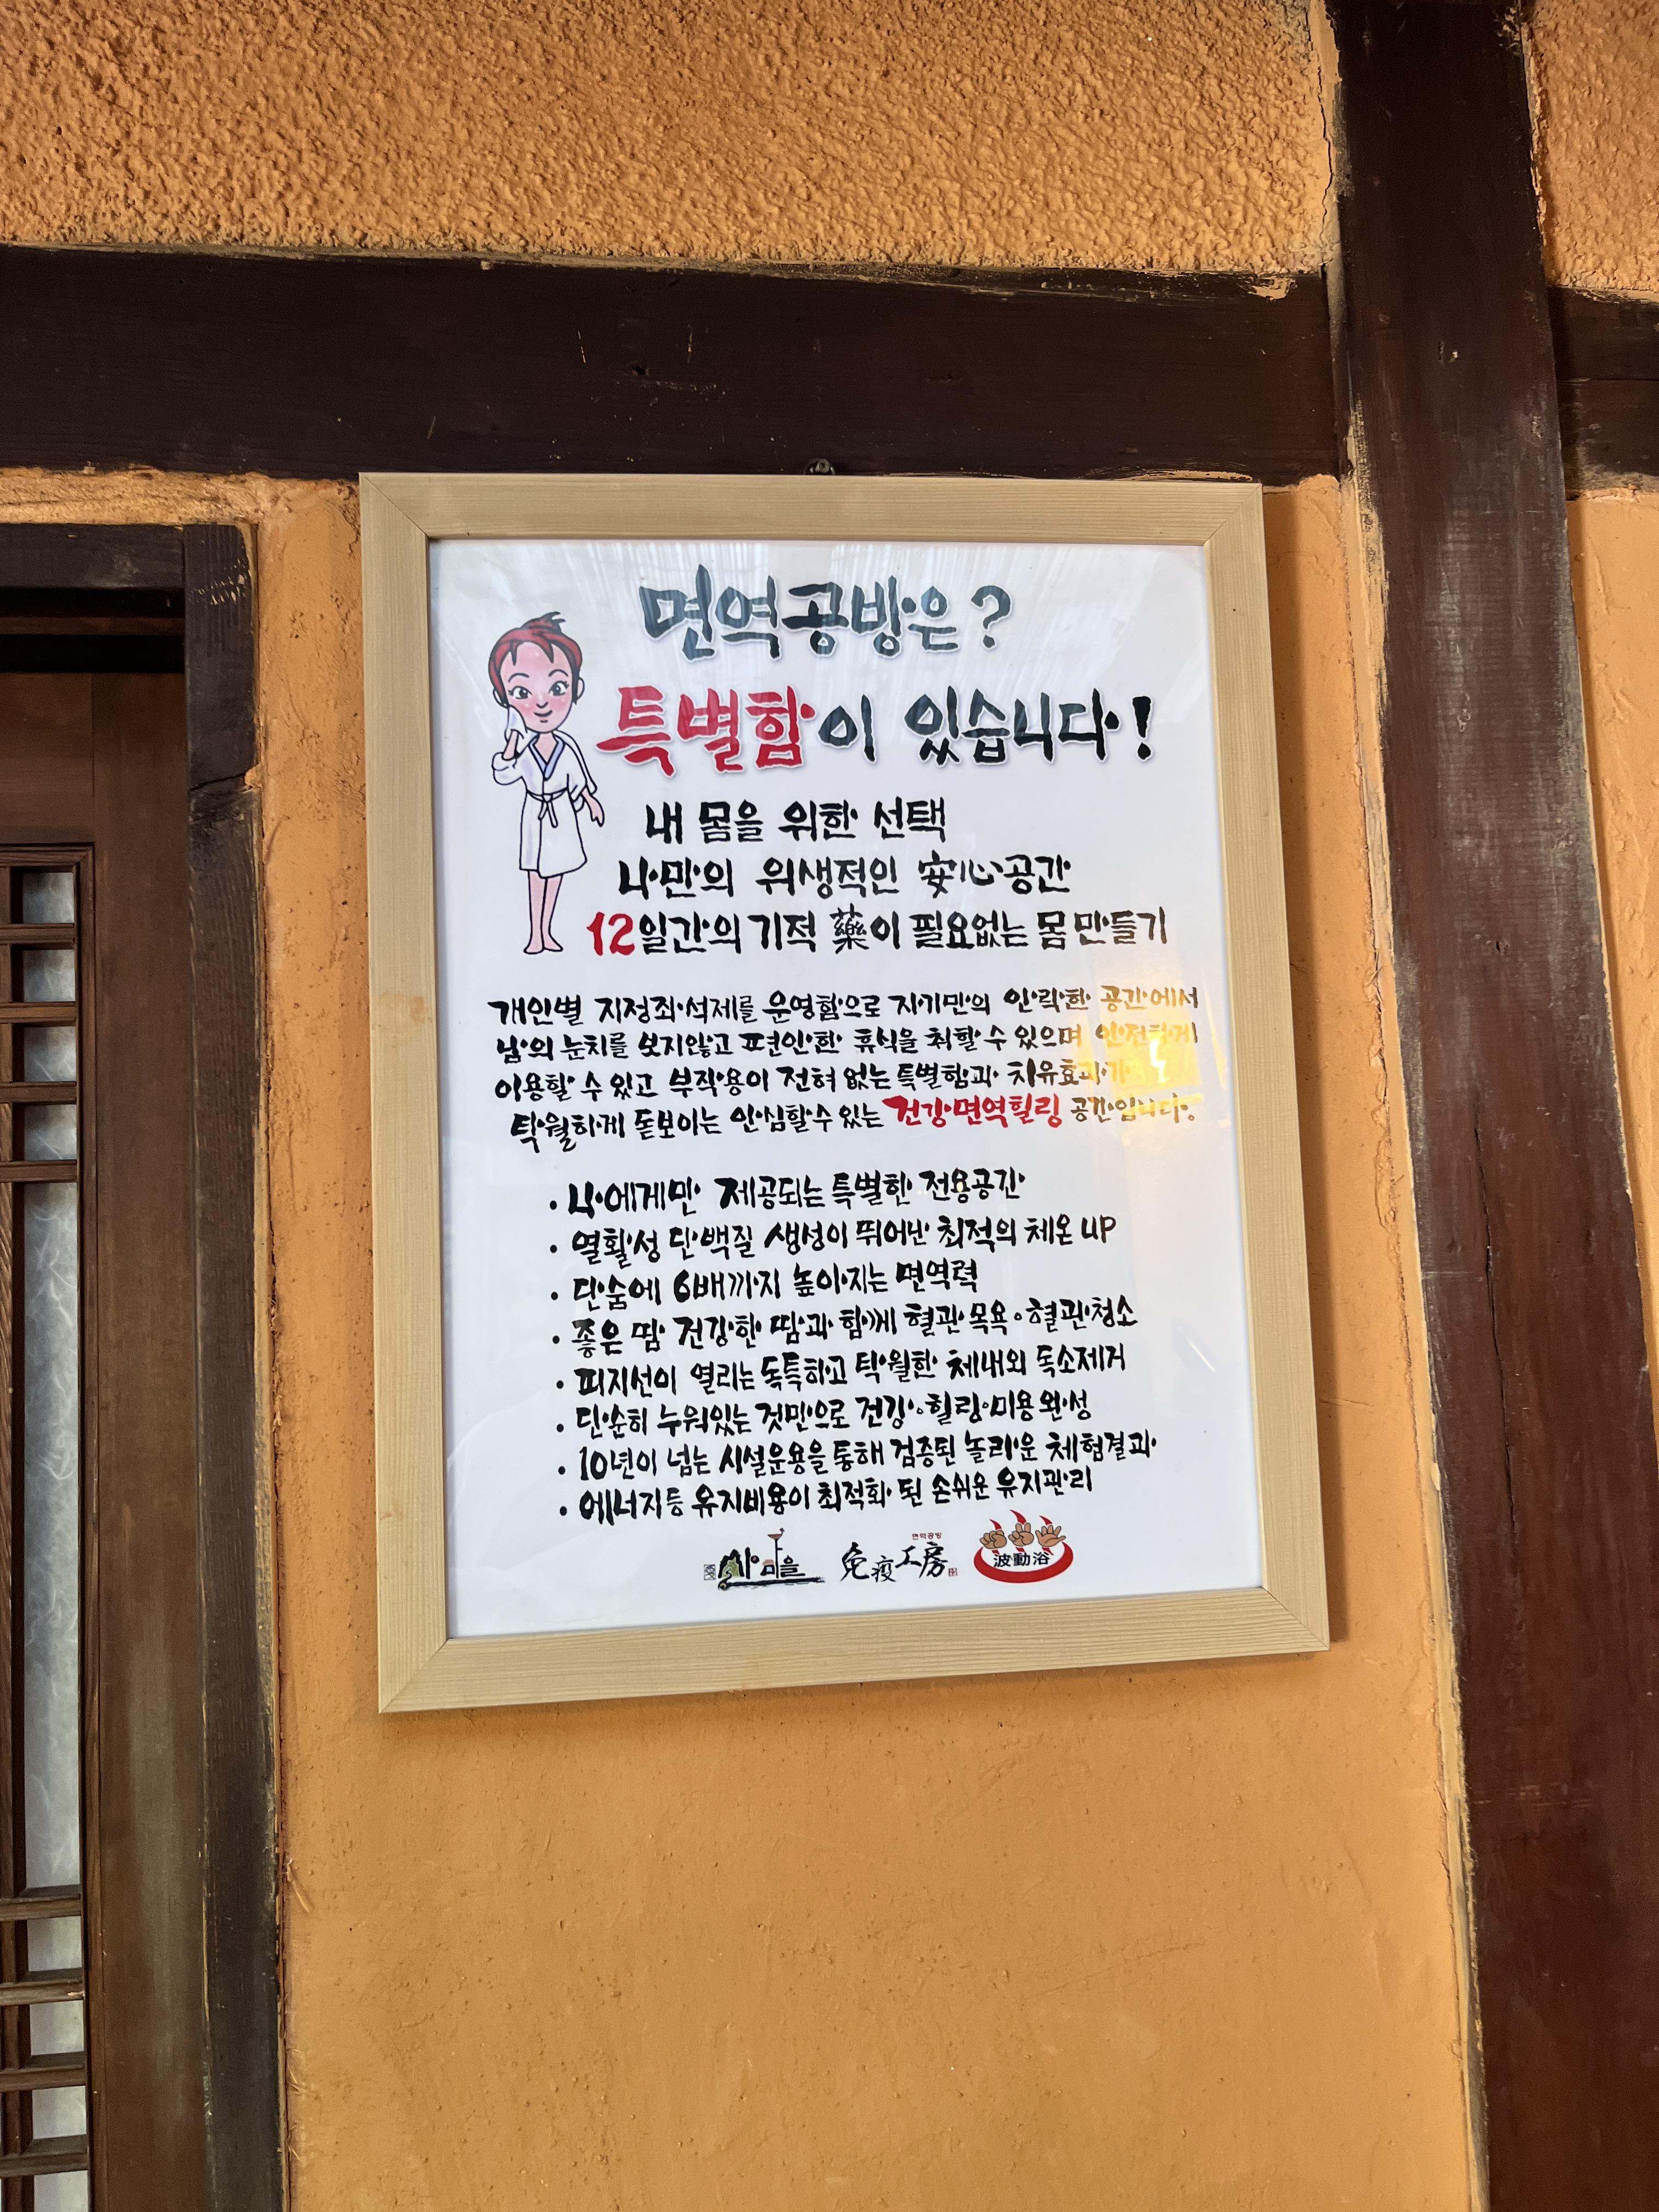 면역공방은?
특별함이 있습니다!
내 몸을 위한 선택
나만의 위생적인 安心공간
12일간의 기적 藥이 필요없는 몸 만들기
개인별 지정좌석제를 운영함으로 자기만의 안락한 공간에서
남의 눈치를 보지않고 편안한 휴식을 취할 수 있으며 안전하게
이용할 수 있고 부작용이 전혀 없는 특별함과 치유효과가
탁월하게 돋보이는 안심할수 있는 건강·면역힐링 공간입니다.
• 나에게만 제공되는 특별한 전용공간
• 열활성 단백질 생성이 뛰어난 최적의 체온 UP
• 단숨에 6배까지 높아지는 면역력
• 좋은 땀 건강한 땀과 함께 혈관목욕·혈관청소
• 피지선이 열리는 독특하고 탁월한 체내외 독소제거
• 단순히 누워있는 것만으로 건강·힐링·미용 완성
• 10년이 넘는 시설운용을 통해 검증된 놀라운 체험결과
• 에너지등 유지비용이 최적화 된 손쉬운 유지관리
마을
면역공방
免疫工房
波動浴